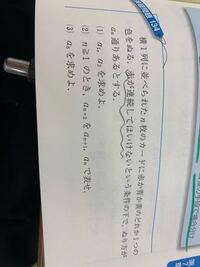 134
横1列に並べられたn枚のカードに赤か青か黄のどれか1つの
色をぬる. 赤が連続してはいけないという条件の下で, ぬり方が
aₙ通りあるとする.
(1) a₁, a₂ を求めよ.
(2) n≧1 のとき, aₙ₊₂ を aₙ₊₁, aₙ で表せ.
(3) a₈ を求めよ.
第7章